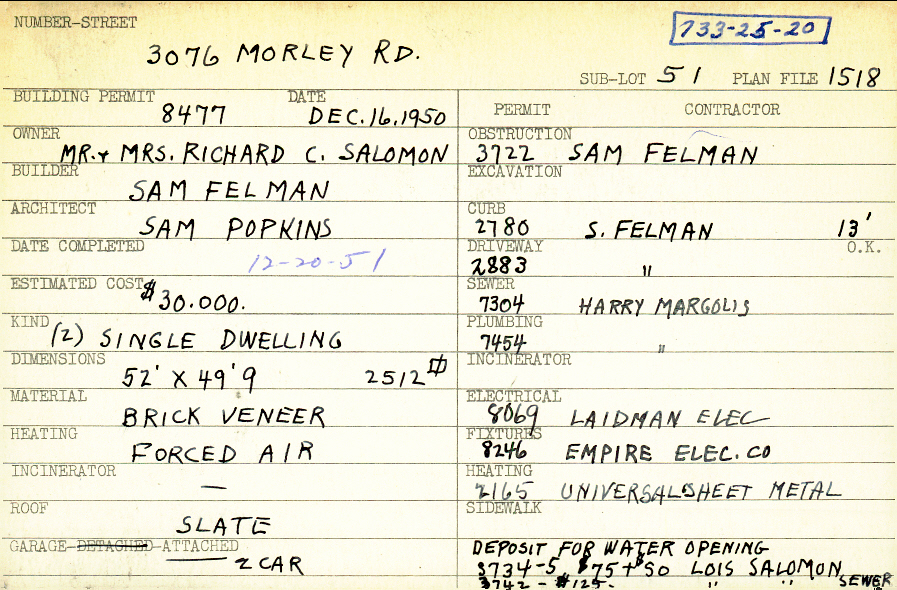 NUMBER-STREET
733-25-20
3076 MORLEY RD.
SUB-LOT 51 PLAN FILE 1518
BUILDING PERMIT DATE
8477 DEC.16,1950
OWNER
MR.+ MRS. RICHARD C. SALOMON
BUILDER
SAM FELMAN
ARCHITECT
SAM POPKINS
DATE COMPLETED
12-20-51
ESTIMATED COST
$30.000.
KIND
(2) SINGLE DWELLING
DIMENSIONS
52' X 49'9 2512
MATERIAL
BRICK VENEER
HEATING
FORCED AIR
INCINERATOR
—
ROOF
SLATE
GARAGE-DETACHED-ATTACHED
2 CAR
PERMIT CONTRACTOR
OBSTRUCTION
3722 SAM FELMAN
EXCAVATION
CURB
2780 S. FELMAN 13'
DRIVEWAY O.K.
2883 "
SEWER
7304 HARRY MARGOLIS
PLUMBING
7454 "
INCINERATOR
ELECTRICAL
8069 LAIDMAN ELEC
FIXTURES
8246 EMPIRE ELEC. CO
HEATING
2165 UNIVERSAL SHEET METAL
SIDEWALK
DEPOSIT FOR WATER OPENING
3734-5 $75+$50 LOIS SALOMON
3742 - $125. " " SEWER